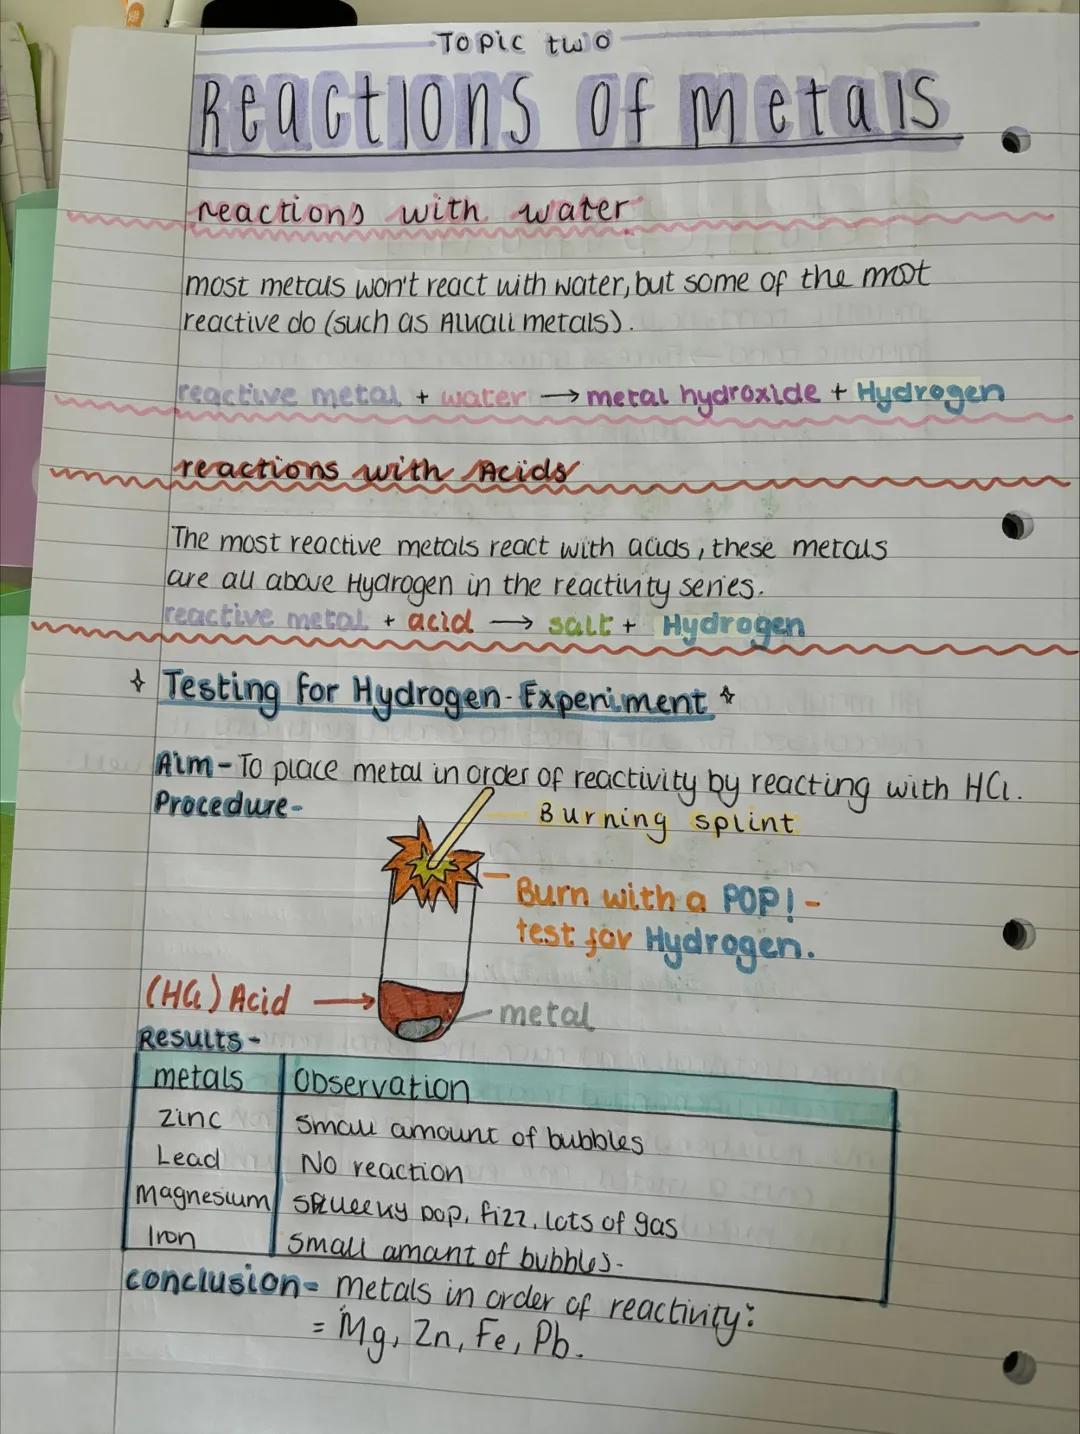 Topic two
Reactions of metals
reactions with water
most metals won't react with water, but some of the most
reactive do (such as Alkali metals).
reactive metal + water → metal hydroxide + Hydrogen
reactions with Acids
The most reactive metals react with acids, these metals
are all above Hydrogen in the reactivity series.
reactive metal + acid → salt + Hydrogen
Testing for Hydrogen - Experiment
Aim - To place metal in order of reactivity by reacting with HCl.
Procedure -
Burning splint
Burn with a POP! -
test for Hydrogen.
(HCl) Acid
metal
Results -
metals Observation
Zinc small amount of bubbles
Lead No reaction
Magnesium squeeky pop, fizz, lots of gas
Iron small amant of bubbles.
conclusion - metals in order of reactivity:
= Mg, Zn, Fe, Pb.